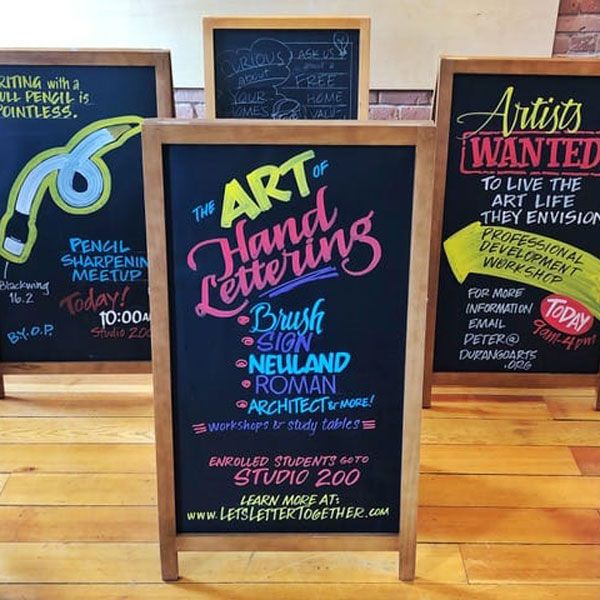 RITING with a
ULL PENCIL is
OINTLESS.
Blackwing
16.2
PENCIL
SHARPENIN
MEETUP
Today!
10:00A
Studio 200
B.Y.O.P.
URIOUS
ABOUT
OUR
OMES
ASK US
about a
FREE
HOME
THE ART OF
Hand
Lettering
• Brush
• SIGN
• NEULAND
• ROMAN
• ARCHITECT & MORE!
WORKSHOPS & study tables
ENROLLED STUDENTS GO TO
STUDIO 200
LEARN MORE AT:
WWW.LETSLETTERTOGETHER.COM
Artists
WANTED
TO LIVE THE
ART LIFE
THEY ENVISION
PROFESSIONAL
DEVELOPMENT
WORKSHOP
FOR MORE
INFORMATION
EMAIL
PETER@
DURANGOARTS
.ORG
TODAY
9am-4pm